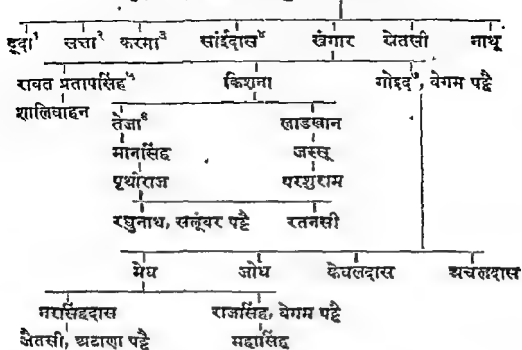 दूदा¹ सत्ता² करमा³ सांईदास⁴ खंगार खेतसी नाथू
रावत प्रतापसिंह⁵ किशना गोइद⁷, वेगम पट्टै
शालिवाहन
तेजा⁶ लाडखान
मानसिंह जस्सू
पृथीराज परशुराम
रघुनाथ, सलूंवर पट्टै रतनसी
मेघ जोध केवलदास अचलदास
नरसिंहदास राजसिंह, वेगम पट्टै
जैतसी, अठाणा पट्टै महासिंह